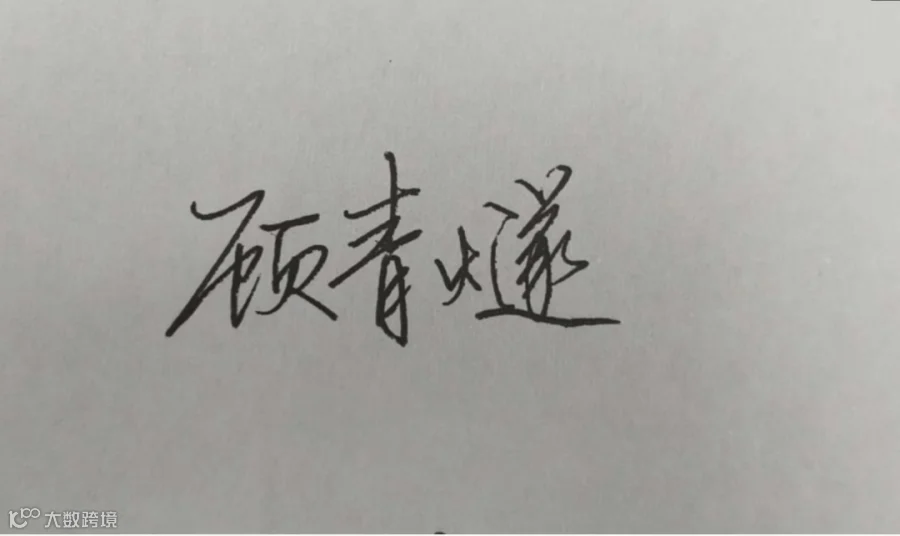 顾青燧
大数跨境